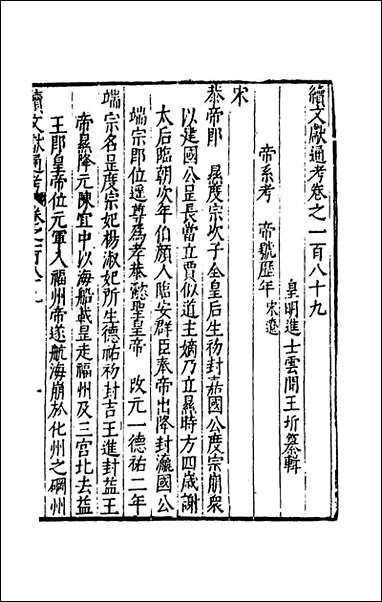 續文獻通考卷之一百八十九
皇明進士雲間王圻纂輯
帝系考 帝號歷年 宋 遼
宋
恭帝即 㬎度宗次子全皇后生初封嘉國公度宗崩衆
以建國公昰長當立賈似道主嫡乃立㬎時方四歲謝
太后臨朝次年伯顏入臨安群臣奉帝出降封瀛國公
端宗即位遥尊爲孝恭懿聖皇帝 改元一德祐二年
端宗名昰度宗妃楊淑妃所生德祐初封吉王進封益王
帝㬎降元陳宜中以海船載昰走福州及三宮北去益
王即皇帝位元軍入福州帝遂航海崩於化州之碙州
續文獻通考 卷之一百八十九 一